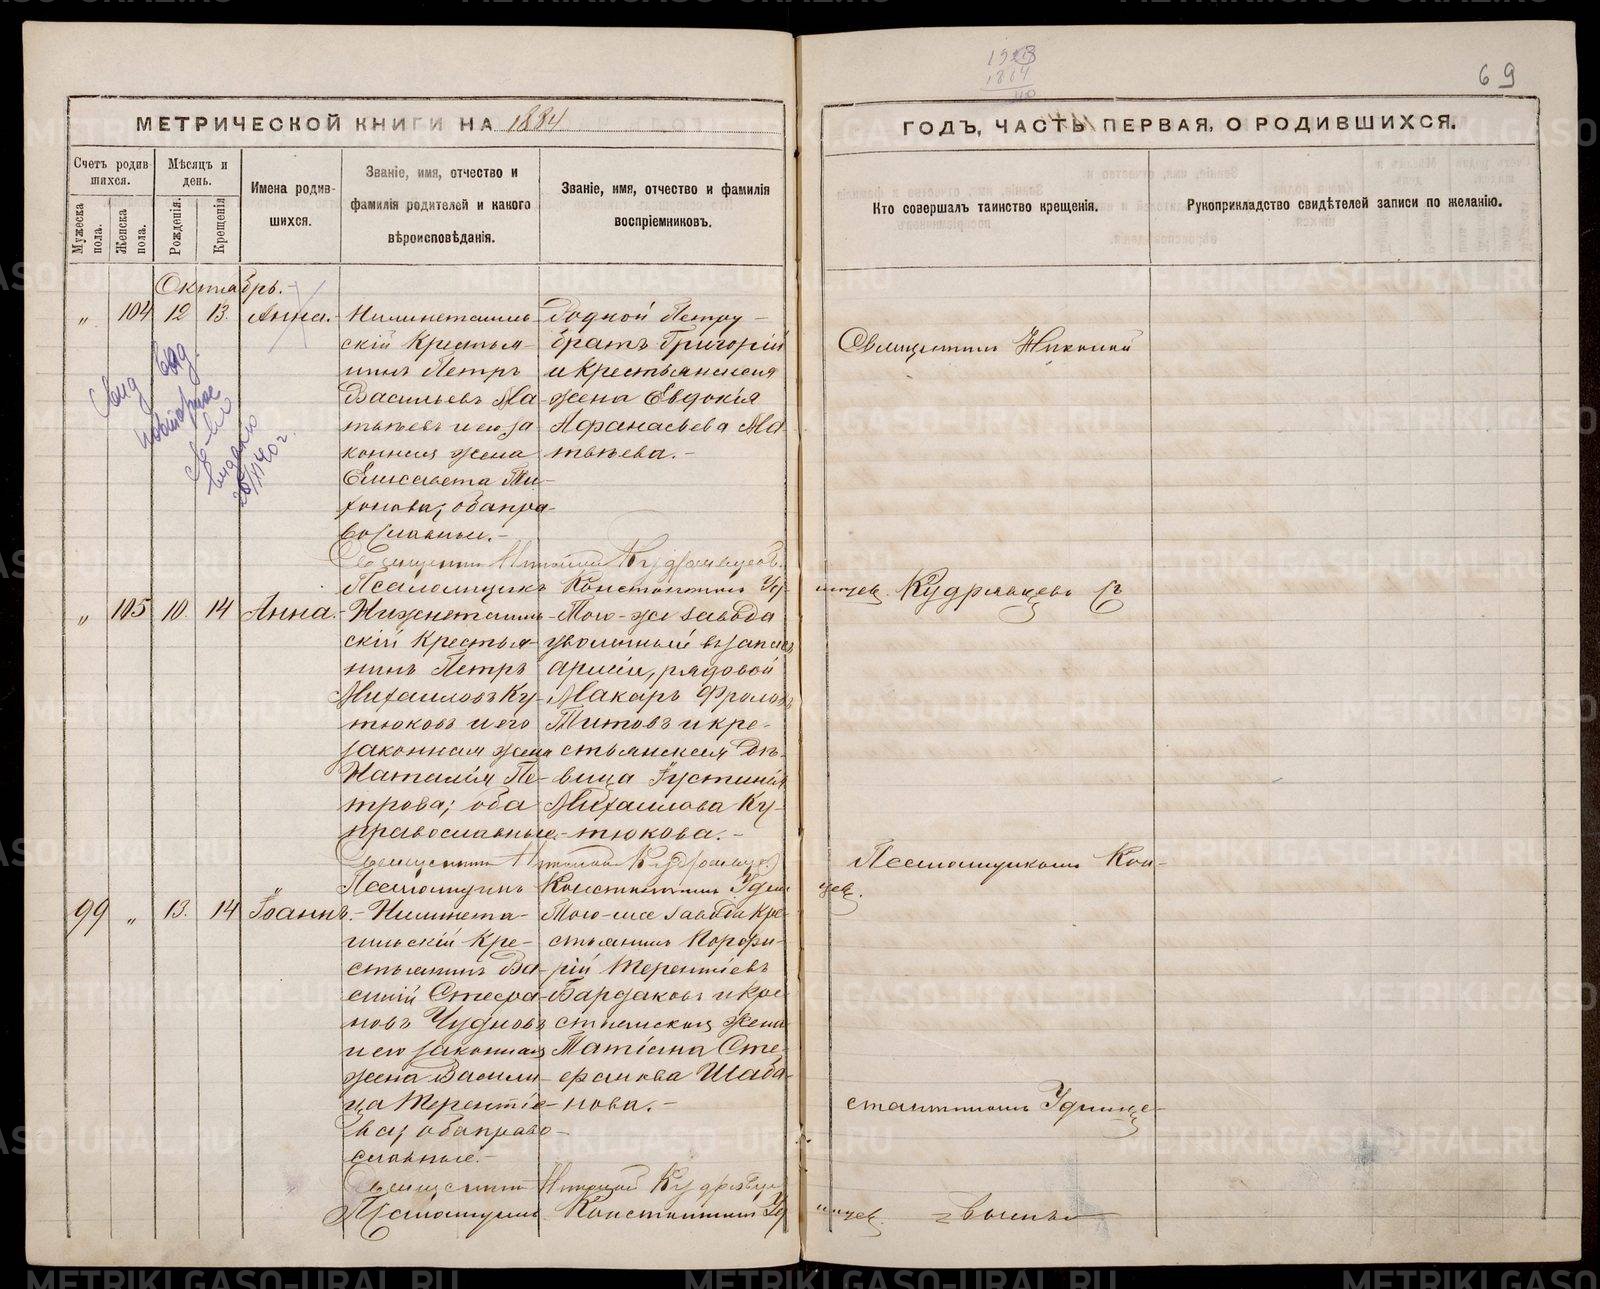 1884
69
МЕТРИЧЕСКОЙ КНИГИ НА 1884
ГОДЪ, ЧАСТЬ ПЕРВАЯ, О РОДИВШИХСЯ.
Счетъ родив-
шихся.
Мужеска пола.
Женска пола.
Мѣсяцъ и
день.
Рожденія.
Крещенія
Имена родив-
шихся.
Званіе, имя, отчество и
фамилія родителей и какого
вѣроисповѣданія.
Званіе, имя, отчество и фамилія
воспріемниковъ.
Кто совершалъ таинство крещенія.
Рукоприкладство свидѣтелей записи по желанію.
Октябрь.
„ 104 12 13. Анна.
Нижнетагиль-
скій Крестья-
нинъ Петръ
Васильевъ Ма-
твѣевъ и его за-
конная жена
Елисавета Ти-
хонова; оба пра-
вославные.
Родной Петру
братъ Григорій
и крестьянская
жена Евдокія
Афанасьева Ма-
твѣева.
Священникъ Николай
Псаломщикъ Константинъ Уд-
Священникъ Николай
Кудрявцевъ съ
„ 105 10. 14 Анна.
Нижнетагиль-
скій Крестья-
нинъ Петръ
Михаиловъ Ку-
тюковъ и его
законная жена
Наталія Пе-
трова; оба
православные.
Того-же завода
уволенный въ запасъ
арміи, рядовой
Макаръ Фроловъ
Титовъ и кре-
стьянская дѣ-
вица Іустинія
Михаилова Ку-
тюкова.
Священникъ Николай Кудрявцевъ
Псаломщикъ Константинъ Удин
цев.
Псаломщикомъ Кон-
99 „ 13. 14 Іоаннъ.
Нижнета-
гильскій Кре-
стьянинъ Ва-
силій Стефа-
новъ Чудновъ
и его законная
жена Васили-
ца Терентіе-
ва; оба право-
славные.
Того-же завода кре-
стьянинъ Порфи-
рій Терентіевъ
Бардаковъ и кре-
стьянская жена
Татіана Сте-
фанова Шаба-
нова.
стантиномъ Удинце-
Священникъ Николай Кудрявце
Псаломщикъ Константинъ Уд
инцев.
вымъ
METRIKI.GASO-URAL.RU